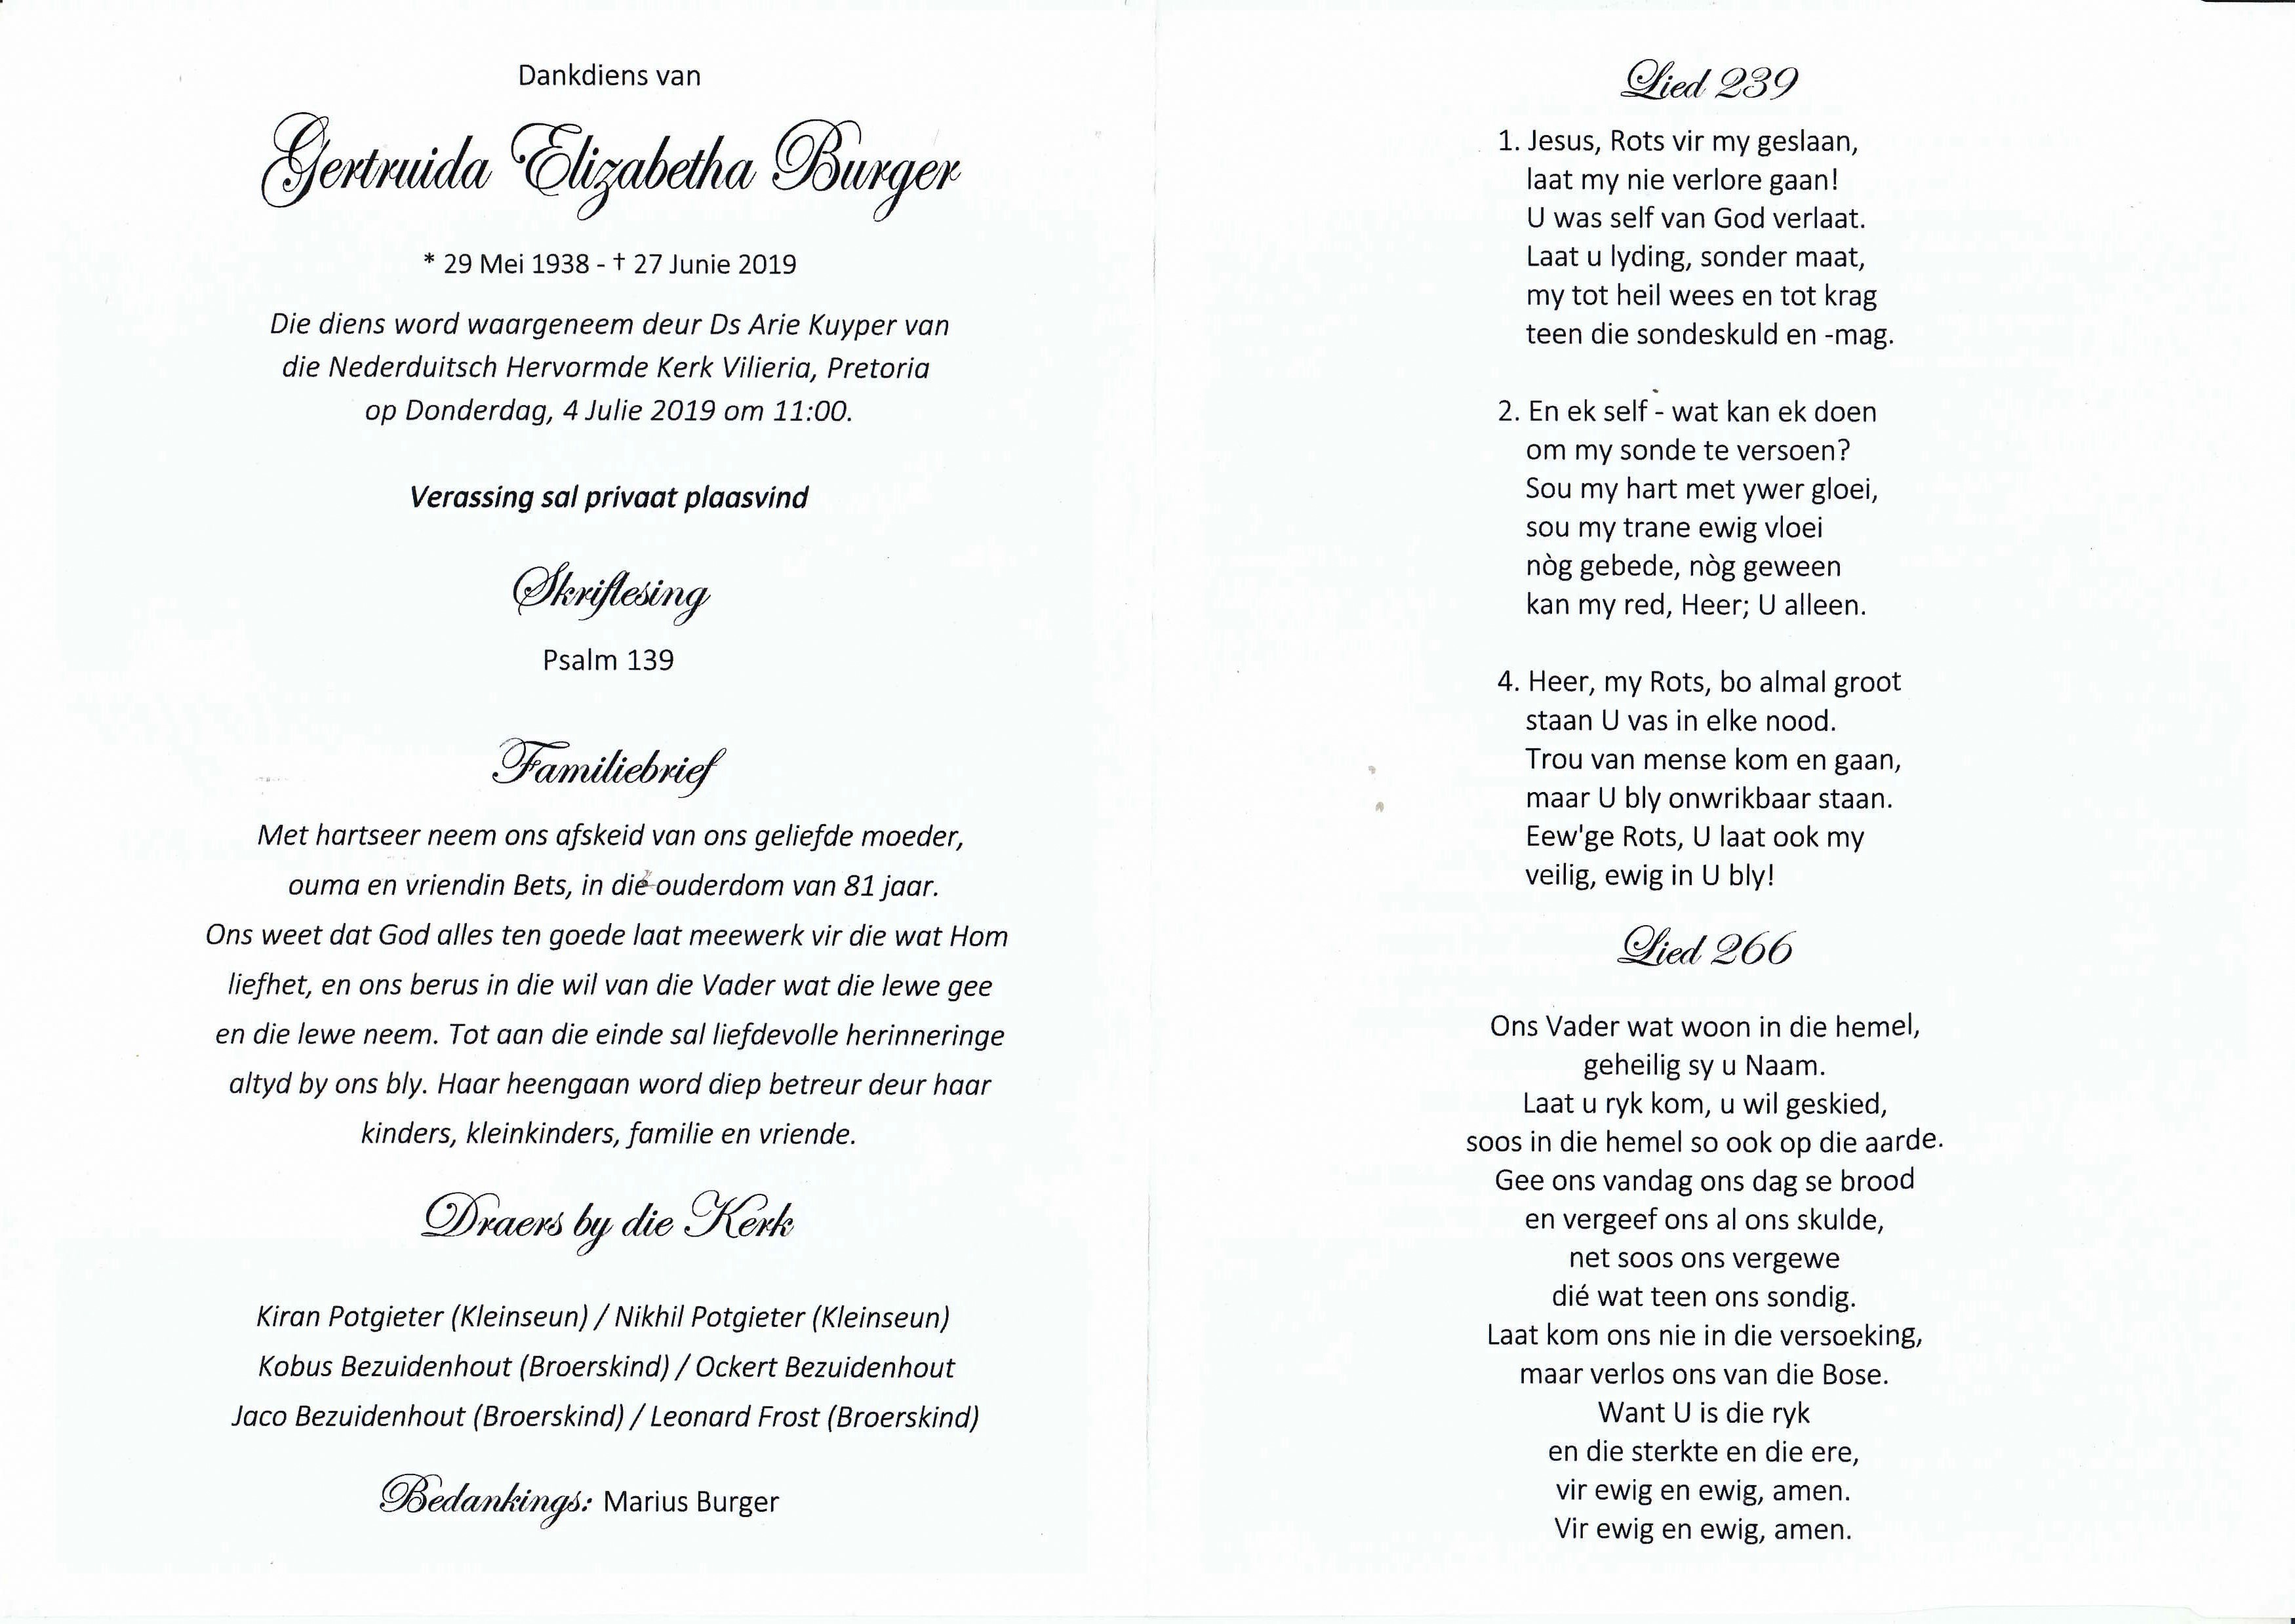 Dankdiens van
Gertruida Elizabetha Burger
* 29 Mei 1938 - † 27 Junie 2019
Die diens word waargeneem deur Ds Arie Kuyper van
die Nederduitsch Hervormde Kerk Vilieria, Pretoria
op Donderdag, 4 Julie 2019 om 11:00.
Verassing sal privaat plaasvind
Skriflesing
Psalm 139
Familiebrief
Met hartseer neem ons afskeid van ons geliefde moeder,
ouma en vriendin Bets, in die ouderdom van 81 jaar.
Ons weet dat God alles ten goede laat meewerk vir die wat Hom
liefhet, en ons berus in die wil van die Vader wat die lewe gee
en die lewe neem. Tot aan die einde sal liefdevolle herinneringe
altyd by ons bly. Haar heengaan word diep betreur deur haar
kinders, kleinkinders, familie en vriende.
Draers by die Kerk
Kiran Potgieter (Kleinseun) / Nikhil Potgieter (Kleinseun)
Kobus Bezuidenhout (Broerskind) / Ockert Bezuidenhout
Jaco Bezuidenhout (Broerskind) / Leonard Frost (Broerskind)
Bedankings: Marius Burger
Lied 239
1. Jesus, Rots vir my geslaan,
laat my nie verlore gaan!
U was self van God verlaat.
Laat u lyding, sonder maat,
my tot heil wees en tot krag
teen die sondeskuld en -mag.
2. En ek self - wat kan ek doen
om my sonde te versoen?
Sou my hart met ywer gloei,
sou my trane ewig vloei
nòg gebede, nòg geween
kan my red, Heer; U alleen.
4. Heer, my Rots, bo almal groot
staan U vas in elke nood.
Trou van mense kom en gaan,
maar U bly onwrikbaar staan.
Eew'ge Rots, U laat ook my
veilig, ewig in U bly!
Lied 266
Ons Vader wat woon in die hemel,
geheilig sy u Naam.
Laat u ryk kom, u wil geskied,
soos in die hemel so ook op die aarde.
Gee ons vandag ons dag se brood
en vergeef ons al ons skulde,
net soos ons vergewe
dié wat teen ons sondig.
Laat kom ons nie in die versoeking,
maar verlos ons van die Bose.
Want U is die ryk
en die sterkte en die ere,
vir ewig en ewig, amen.
Vir ewig en ewig, amen.